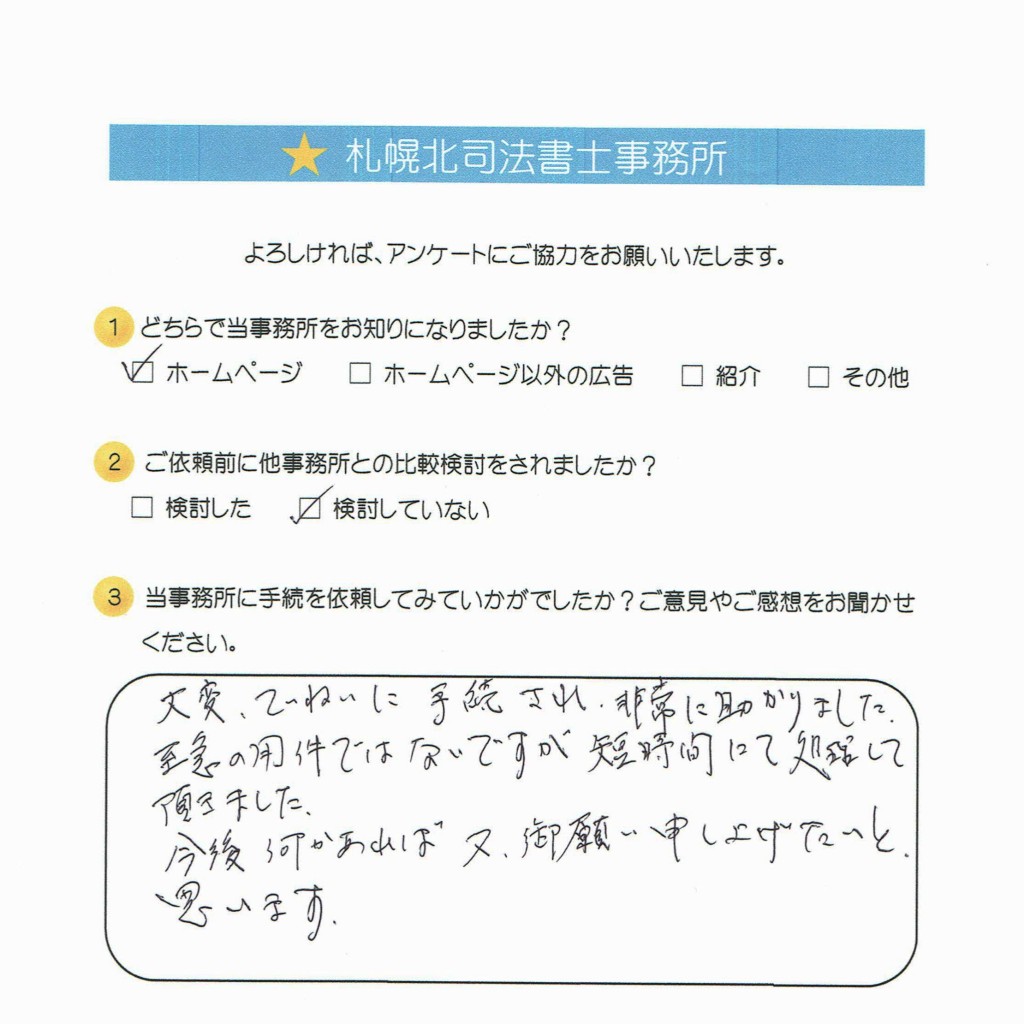 ★ 札幌北司法書士事務所
よろしければ、アンケートにご協力をお願いいたします。
1 どちらで当事務所をお知りになりましたか？
☑ ホームページ □ ホームページ以外の広告 □ 紹介 □ その他
2 ご依頼前に他事務所との比較検討をされましたか？
□ 検討した ☑ 検討していない
3 当事務所に手続を依頼してみていかがでしたか？ご意見やご感想をお聞かせ
ください。
大変、ていねいに手続され、非常に助かりました。
至急の用件ではないですが短時間にて処理して
頂きました。
今後何かあれば又、御願い申し上げたいと、
思います。